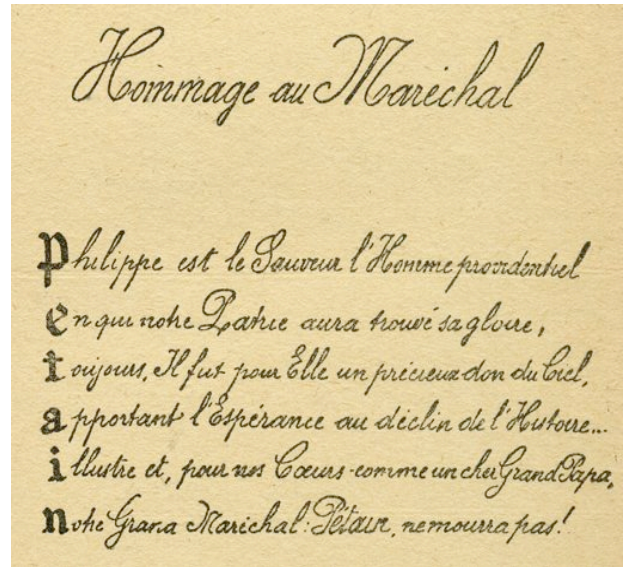 Hommage au Maréchal
Philippe est le Sauveur l'Homme providentiel
en qui notre Patrie aura trouvé sa gloire,
toujours, Il fut pour Elle un précieux don du Ciel,
apportant l'Espérance au déclin de l'Histoire...
illustre et, pour nos Cœurs comme un cher Grand Papa,
notre Grand Maréchal: Pétain, ne mourra pas!